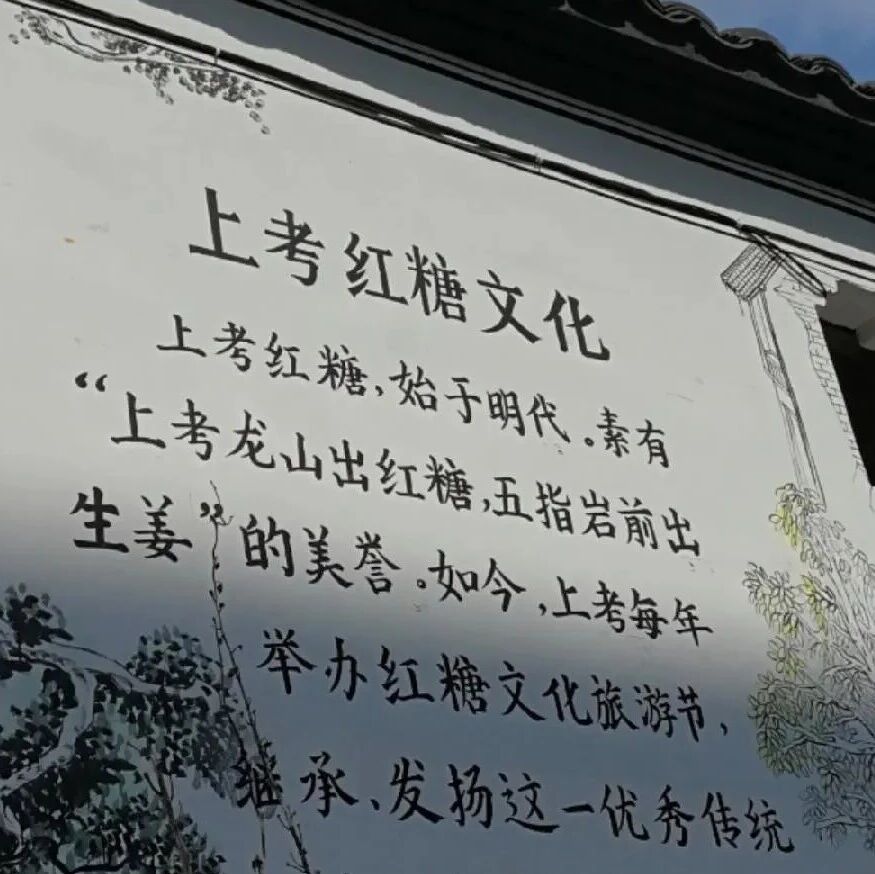 上考红糖文化
上考红糖,始于明代。素有
“上考龙山出红糖,五指岩前出
生姜”的美誉。如今,上考每年
举办红糖文化旅游节,
继承、发扬这一优秀传统